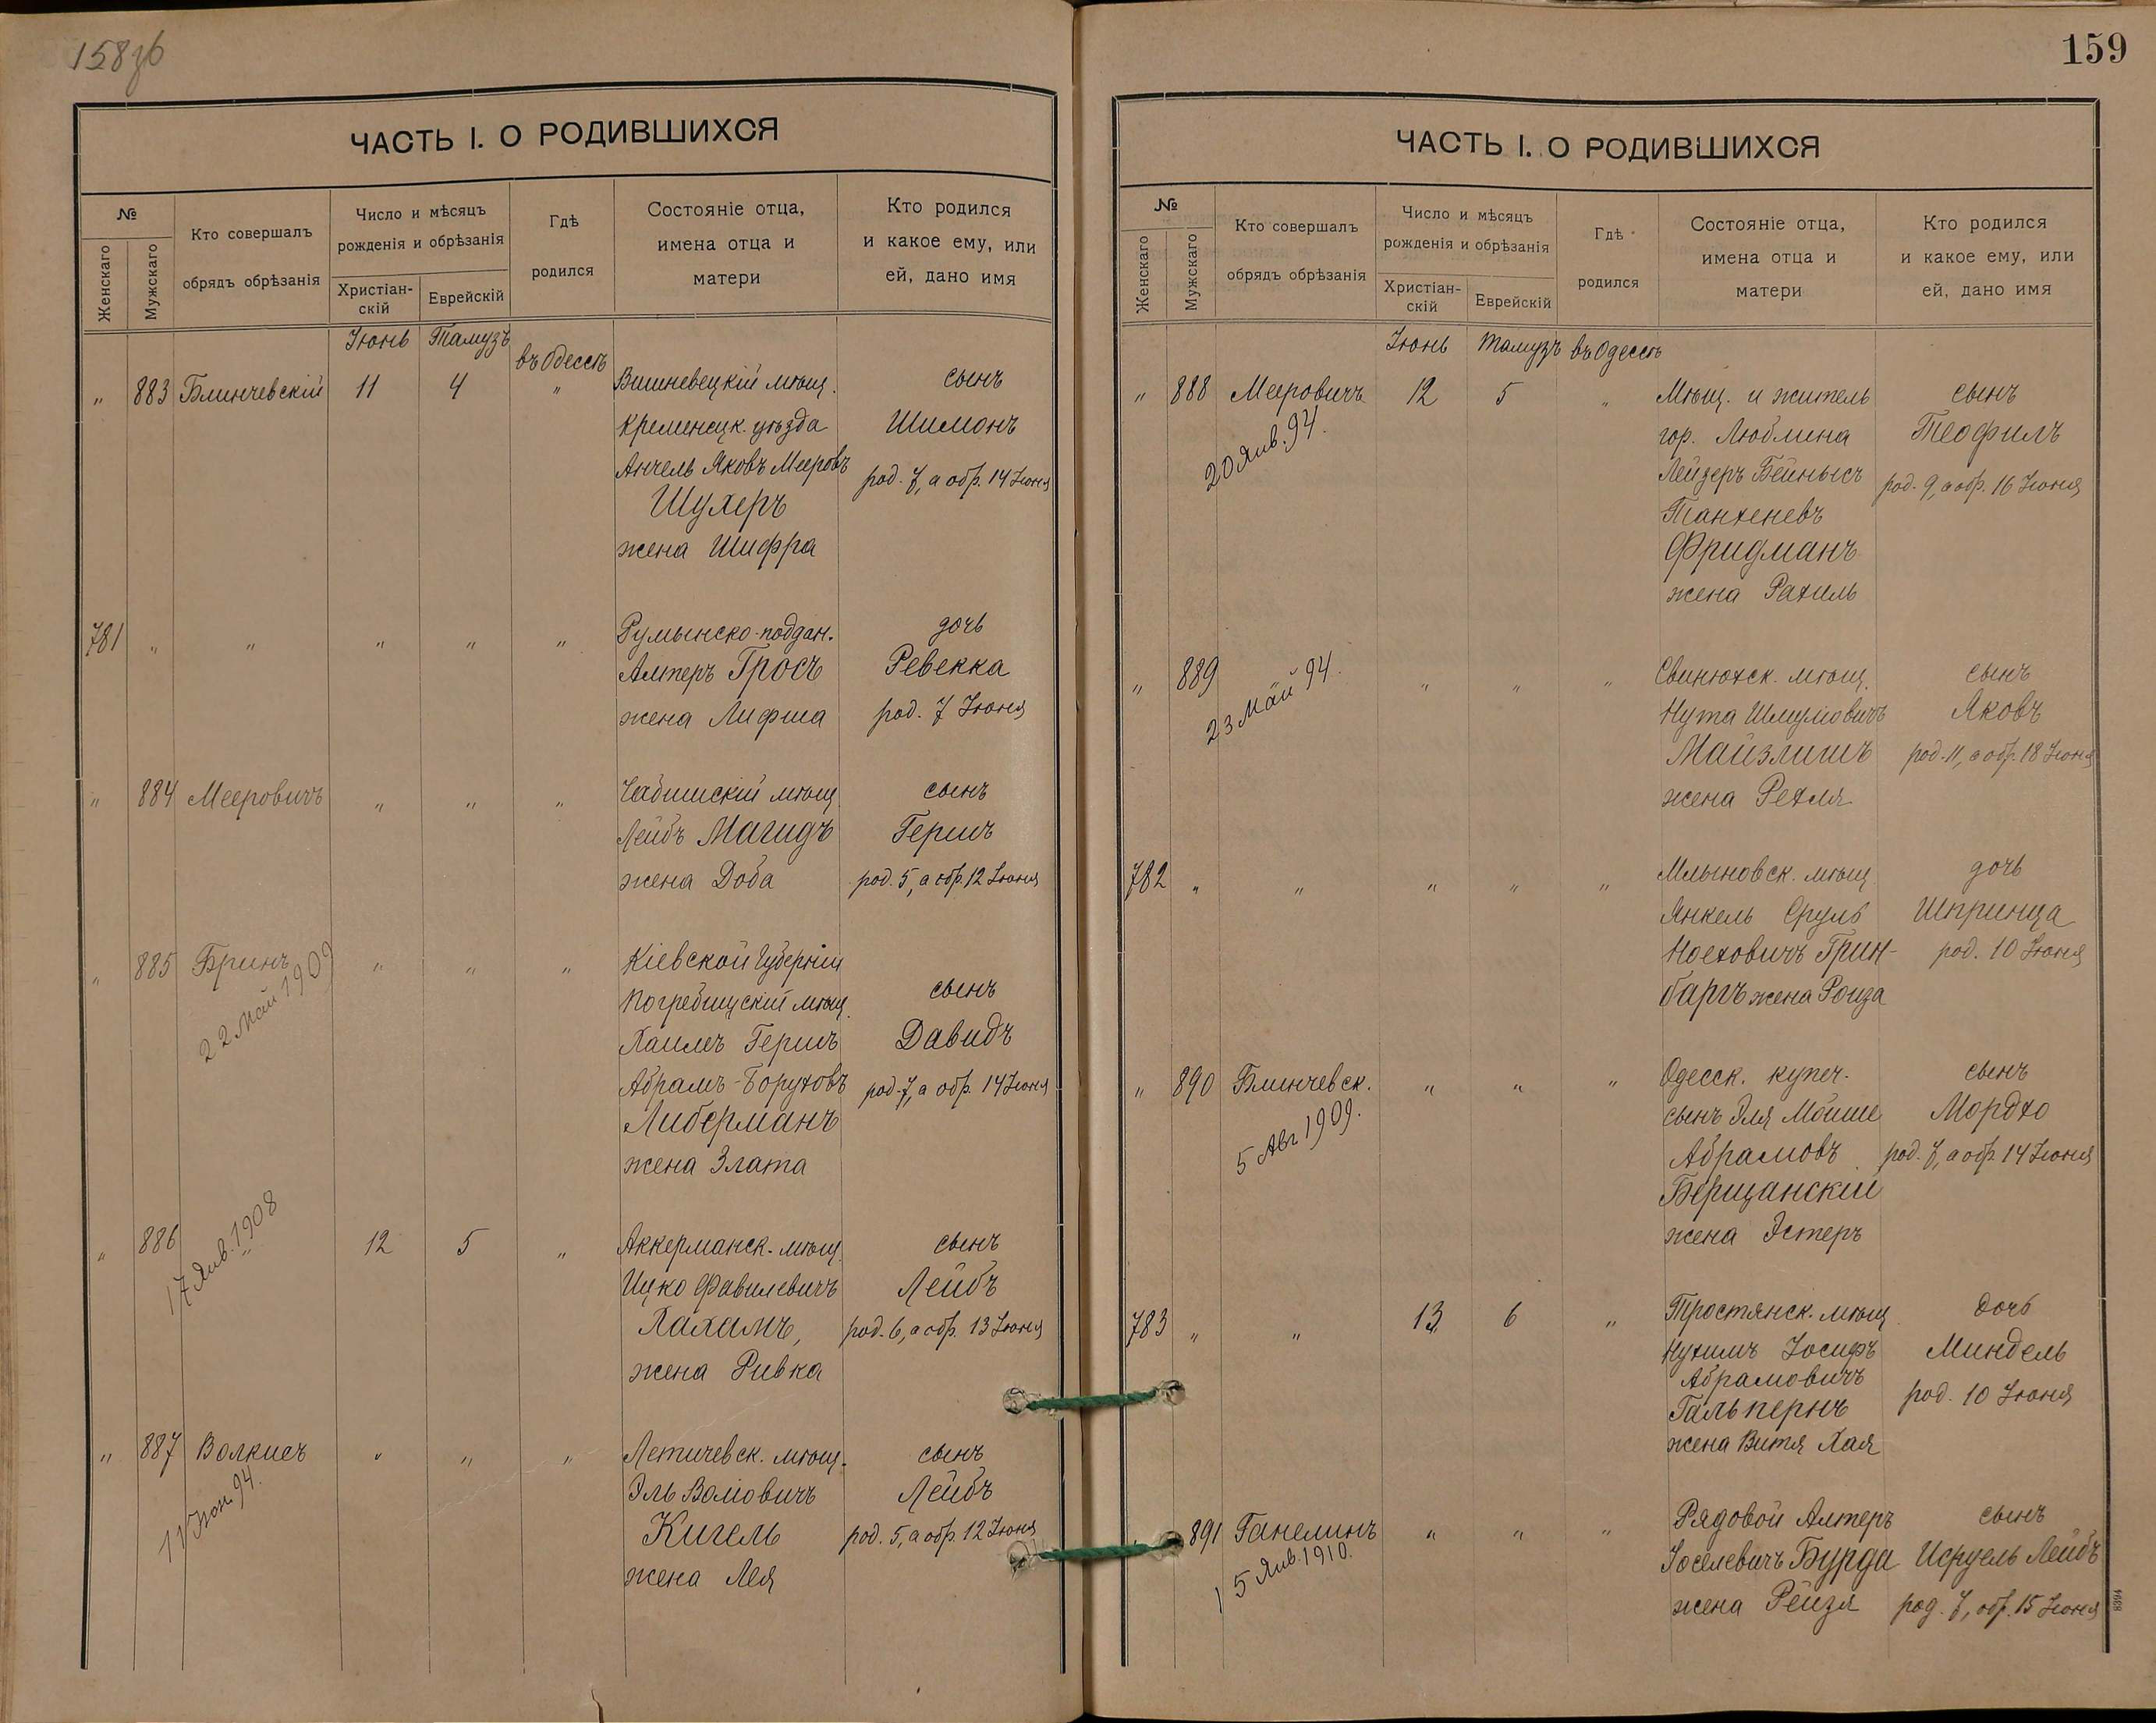 158 зб
ЧАСТЬ I. О РОДИВШИХСЯ
№
Женскаго
Мужскаго
Кто совершалъ
обрядъ обрѣзанія
Число и мѣсяцъ
рожденія и обрѣзанія
Христіан-
скій
Еврейскій
Гдѣ
родился
Состояніе отца,
имена отца и
матери
Кто родился
и какое ему, или
ей, дано имя
Іюнь Тамузъ въ Одессѣ
" 883 Блинчевскій 11 4 " Вишневецкій мѣщ. сынъ
Кременецк. уѣзда Шимонъ
Анчель Яковъ Мееровъ род. 7, а обр. 14 Іюня
Шухеръ
жена Шифра
781 " " " " " Румынско-поддан. дочь
Алтеръ Гросъ Ревекка
жена Лифша род. 7 Іюня
" 884 Мееровичъ " " " мѣщ. сынъ
Лейбъ Магидъ Гершъ
жена Доба род. 5, а обр. 12 Іюня
" 885 Бринъ " " " Кіевской Губерніи
22 Май 1909
Погребищскій мѣщ. сынъ
Хаимъ Гершъ Давидъ
Абрамъ-Боруховъ род. 7, а обр. 14 Іюня
Либерманъ
жена Злата
" 886 " 12 5 " Аккерманск. мѣщ. сынъ
17 Янв. 1908
Ицко Фавилевичъ Лейбъ
Хахамъ, род. 6, а обр. 13 Іюня
жена Ривка
" 887 Волкисъ " " " Летичевск. мѣщ. сынъ
94.
Эль Волювичъ Лейбъ
Кигель род. 5, а обр. 12 Іюня
жена Лея
159
ЧАСТЬ I. О РОДИВШИХСЯ
№
Женскаго
Мужскаго
Кто совершалъ
обрядъ обрѣзанія
Число и мѣсяцъ
рожденія и обрѣзанія
Христіан-
скій
Еврейскій
Гдѣ
родился
Состояніе отца,
имена отца и
матери
Кто родился
и какое ему, или
ей, дано имя
Іюнь Тамузъ въ Одессѣ
" 888 Мееровичъ 12 5 " Мѣщ. и житель сынъ
20 Янв. 94.
гор. Люблина Теофилъ
Лейзеръ Бейнысъ род. 9, а обр. 16 Іюня
Танхеневъ
Фридманъ
жена Рахиль
" 889 " " " " Свинюхск. мѣщ. сынъ
23 Май 94.
Нута Шмулювичъ Яковъ
Майзлишъ род. 11, а обр. 18 Іюня
жена Рехля
782 " " " " " Млыновск. мѣщ. дочь
Янкель Сруль Шпринца
Ноеховичъ Грин- род. 10 Іюня
баргъ жена Роиза
" 890 Блинчевск. " " " Одесск. купеч. сынъ
5 Авг 1909.
сынъ Эля Мойше Мордхо
Абрамовъ род. 7, а обр. 14 Іюня
Берщанскій
жена Эстеръ
783 " " 13 6 " Тростянск. мѣщ. дочь
Нухимъ Іосифъ Миндель
Абрамовичъ
Гальпернъ род. 10 Іюня
жена Витя Хая
891 Ганелинъ " " " Рядовой Алтеръ сынъ
15 Янв. 1910.
Іоселевичъ Бурда Исруель Лейбъ
жена Рейзя род. 7, обр. 15 Іюня
8394